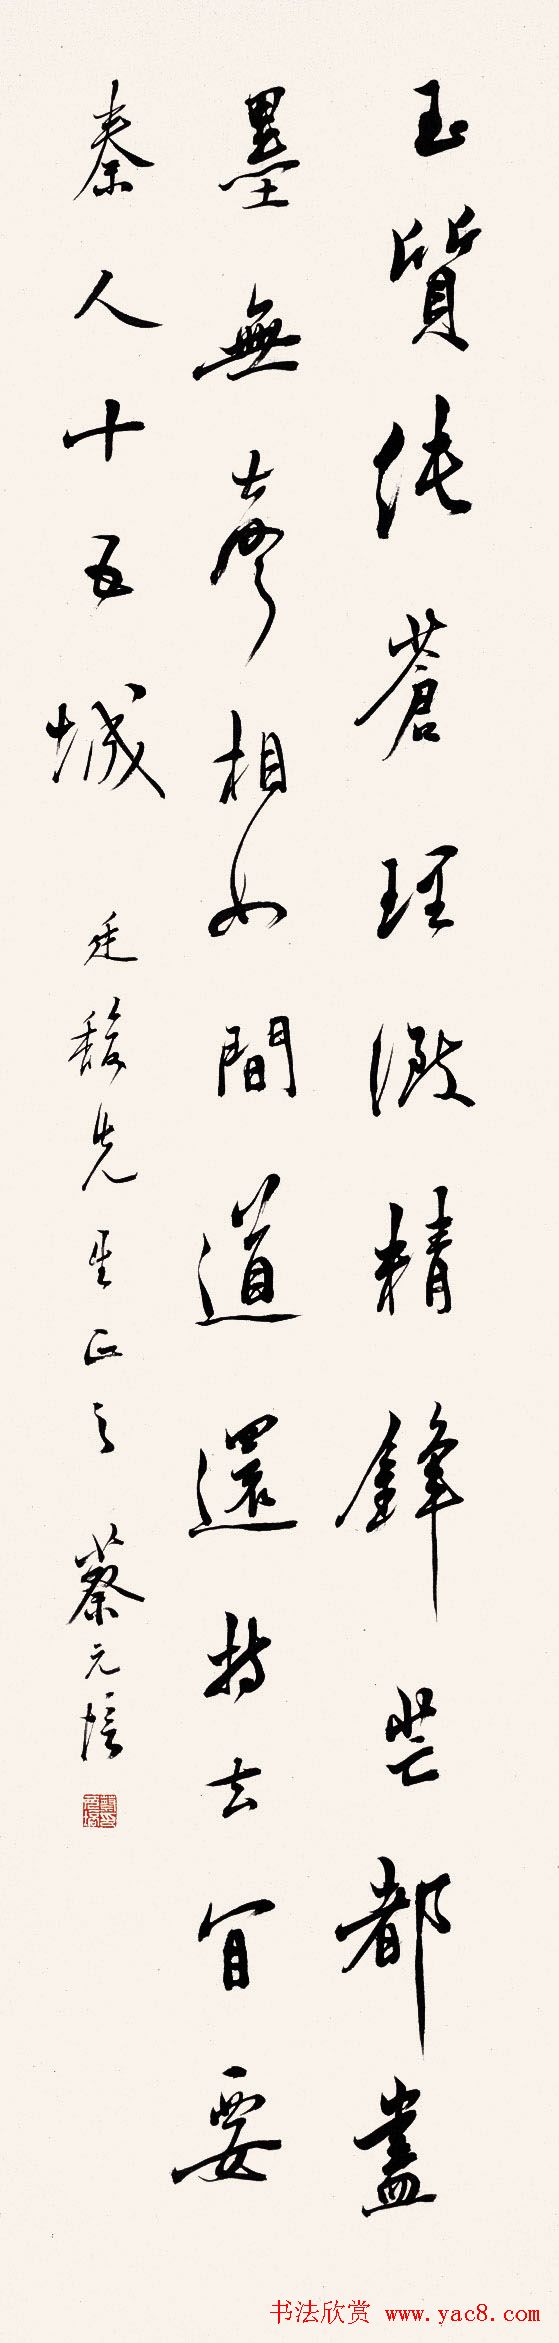 玉質純蒼理緻精鋒芒都盡
墨無聲相如間道還持去肯要
秦人十五城 廷馥先生正之 蔡元培
书法欣赏 www.yac8.com